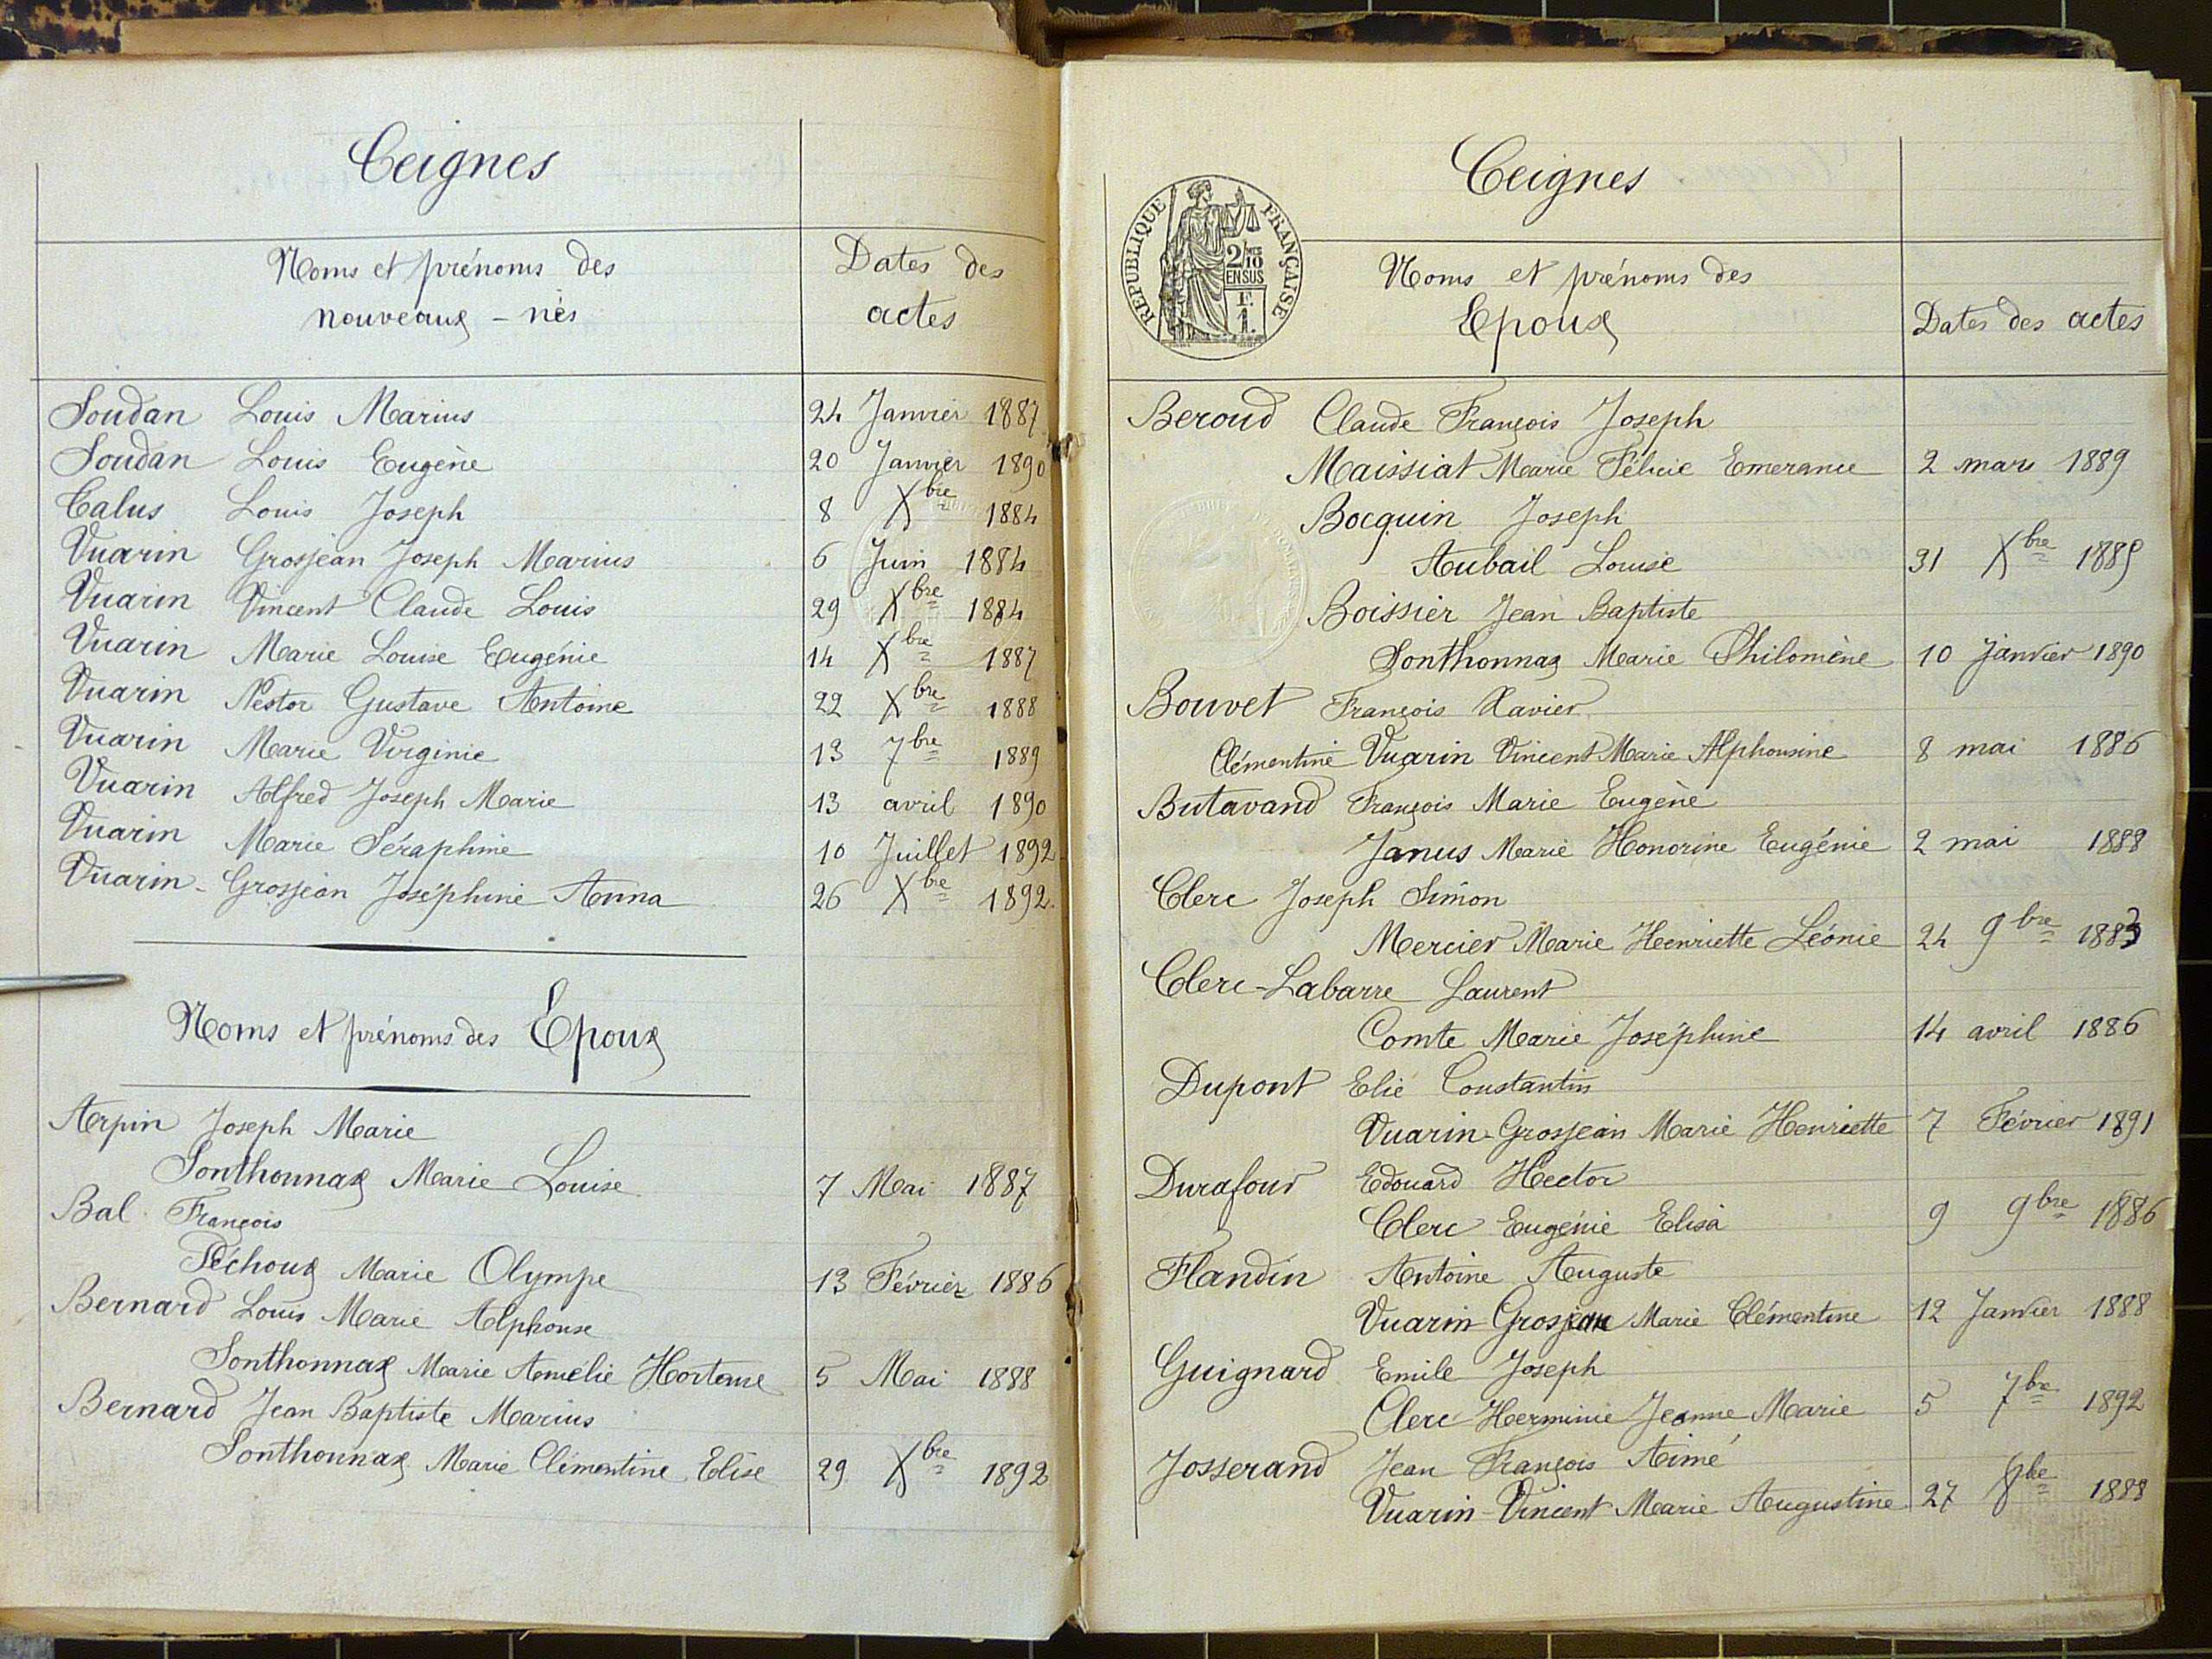 Ceignes
Noms et prénoms des
nouveaux - nés
Dates des
actes
Soudan Louis Marius 24 Janvier 1887
Soudan Louis Eugène 20 Janvier 1890
Calus Louis Joseph 8 Xbre 1884
Vuarin Grosjean Joseph Marius 6 Juin 1884
Vuarin Vincent Claude Louis 29 Xbre 1884
Vuarin Marie Louise Eugénie 14 Xbre 1887
Vuarin Nestor Gustave Antoine 22 Xbre 1888
Vuarin Marie Virginie 13 7bre 1889
Vuarin Alfred Joseph Marie 13 avril 1890
Vuarin Marie Séraphine 10 Juillet 1892
Vuarin - Grosjean Joséphine Anna 26 Xbre 1892.
Noms et prénoms des Epoux
Arpin Joseph Marie
Sonthonnax Marie Louise 7 Mai 1887
Bal François
Péchoux Marie Olympe 13 Février 1886
Bernard Louis Marie Alphonse
Sonthonnax Marie Amélie Hortense 5 Mai 1888
Bernard Jean Baptiste Marius
Sonthonnax Marie Clémentine Elise 29 Xbre 1892
Ceignes
RÉPUBLIQUE FRANÇAISE
2/10
EN SUS
F.
1.
Noms et prénoms des
Epoux
Dates des actes
Beroud Claude François Joseph
Maissiat Marie Félicie Emerance 2 mars 1889
Bocquin Joseph
Aubail Louise 31 Xbre
Boissier Jean Baptiste
Sonthonnax Marie Philomène 10 Janvier 1890
Bouvet François Xavier
Clémentine Vuarin Vincent Marie Alphonsine 8 mai 1886
Butavand François Marie Eugène
Janus Marie Honorine Eugénie 2 mai 1888
Clerc Joseph Simon
Mercier Marie Henriette Léonie 24 9bre 1883
Clerc-Labarre Laurent
Comte Marie Joséphine 14 avril 1886
Dupont Elie Constantin
Vuarin-Grosjean Marie Henriette 7 Février 1891
Durafour Edouard Hector
Clerc Eugénie Elisa 9 9bre 1886
Flandin Antoine Auguste
Vuarin-Grosjean Marie Clémentine 12 Janvier 1888
Guignard Emile Joseph
Clerc Herminie Jeanne Marie 5 7bre 1892
Josserand Jean François Aimé
Vuarin-Vincent Marie Augustine 27 8bre 1888